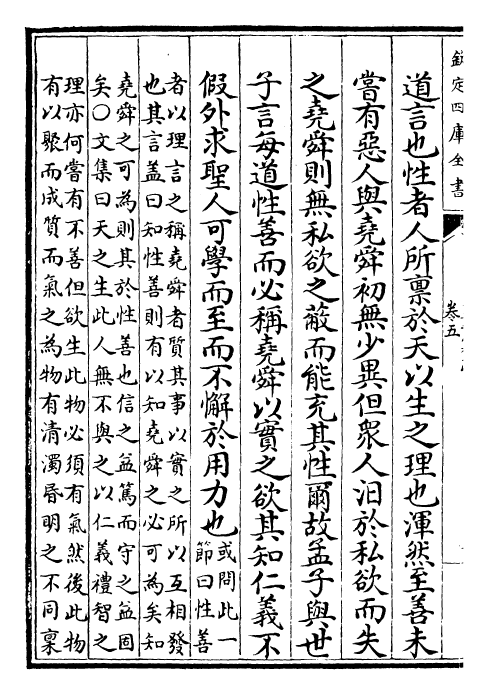 欽定四庫全書
卷五
道言也性者人所禀於天以生之理也渾然至善未
嘗有惡人與堯舜初無少異但衆人汨於私欲而失
之堯舜則無私欲之蔽而能充其性爾故孟子與世
子言每道性善而必稱堯舜以實之欲其知仁義不
假外求聖人可學而至而不懈於用力也
或問此一
節曰性善
者以理言之稱堯舜者質其事以實之所以互相發
也其言葢曰知性善則有以知堯舜之必可為矣知
堯舜之可為則其於性善也信之益篤而守之益固
矣○文集曰天之生此人無不與之以仁義禮智之
理亦何嘗有不善但欲生此物必須有氣然後此物
有以聚而成質而氣之為物有清濁昏明之不同稟